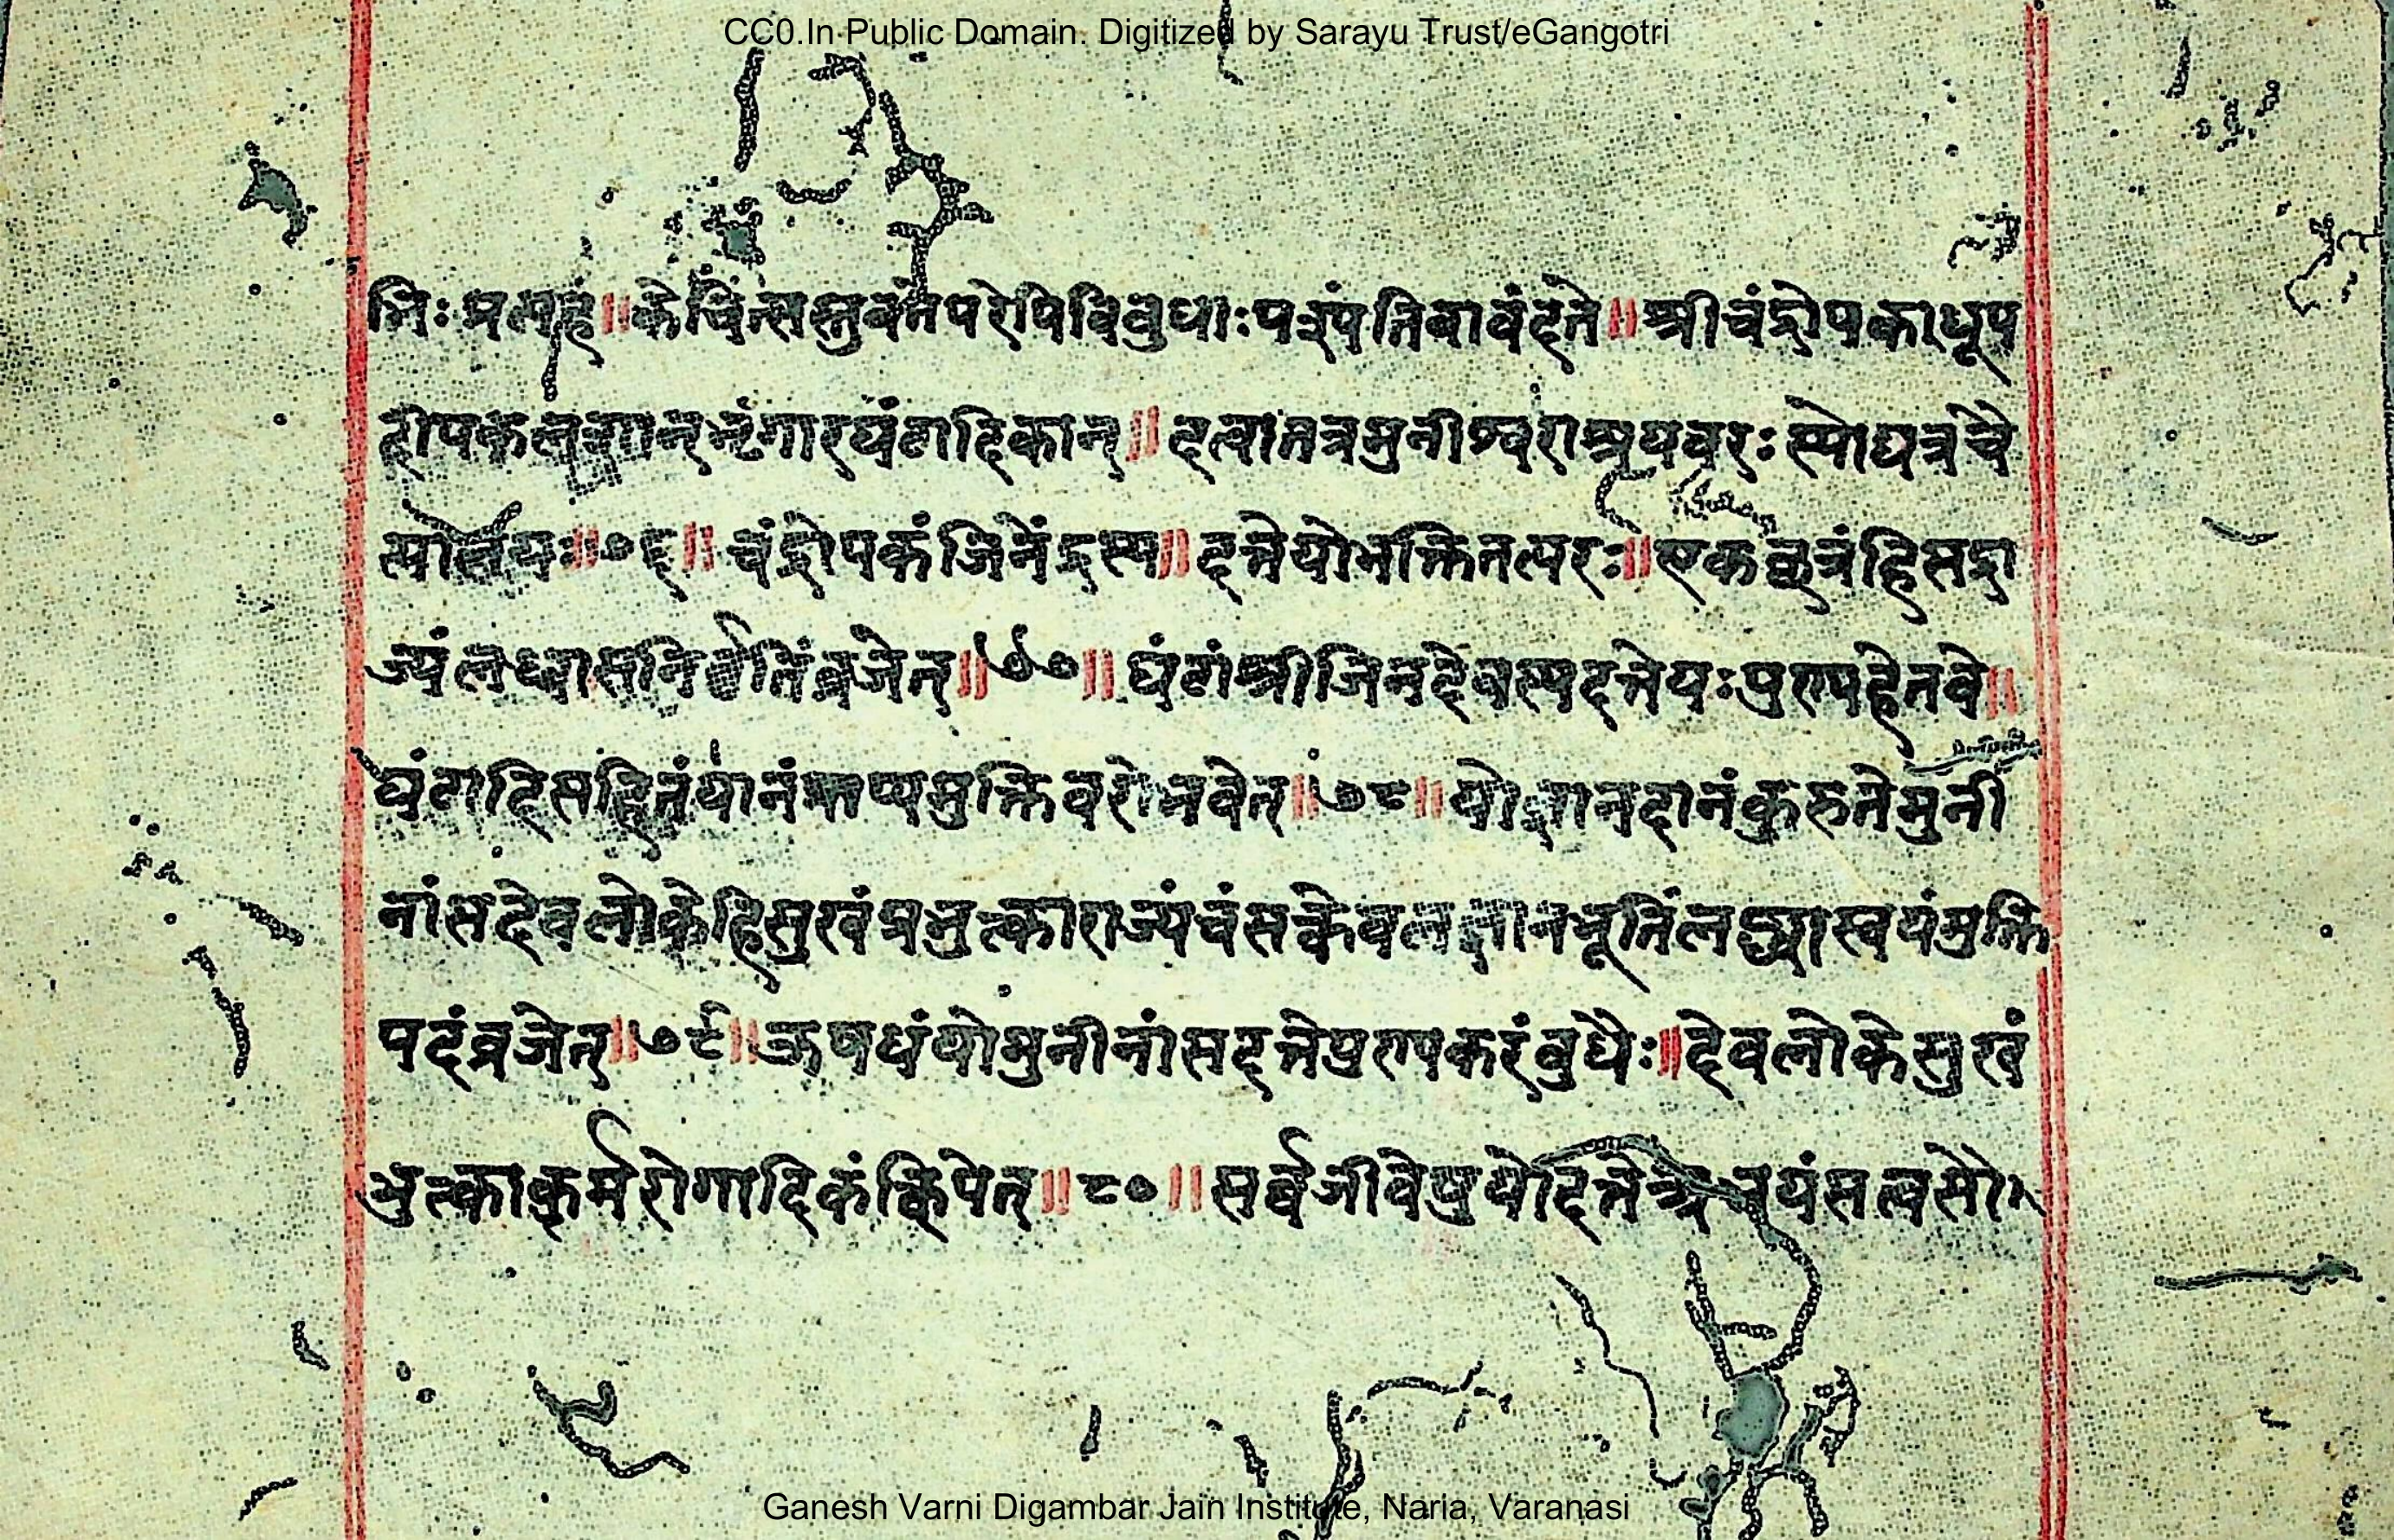 CC0.In Public Domain. Digitized by Sarayu Trust/eGangotri
भिः प्रत्यहं॥केचिन्त्सस्तुवंतेपरेपिविबुधाः पत्रंपतिवावंदते॥श्रीचंद्रोपकाधूप
दीपकलशान्भृंगारघंटादिकान्॥दत्वातत्रमुनीश्वराश्रयवरः स्योद्यत्रचै
त्यालयः॥७६॥चंद्रोपकंजिनेंद्रस्य॥दत्तेयोभक्तितत्परः॥एकछत्रंहिसद्रा
ज्यंलब्ध्वासनिर्वृतिंव्रजेत्॥७७॥घंटांश्रीजिनदेवस्यदत्तेयःपुण्यहेतवे॥
घंटादिसहितंयानंप्राप्यमुक्तिवरोभवेत्॥७८॥योज्ञानदानंकुरुतेमुनी
नांसदेवलोकेहिसुखंप्रभुत्काराज्यंचसत्केवलज्ञानभूतिंलब्ध्वास्वयंमुक्ति
पदंव्रजेत्॥७९॥ऊषधंयोमुनीनांसदत्तेपुण्यकरंबुधैः॥देवलोकेसुखं
भुत्काकर्मरोगादिकंक्षिपेत्॥८०॥सर्वजीवेषुयोदत्तेअभयंसत्वसौ
Ganesh Varni Digambar Jain Institute, Naria, Varanasi